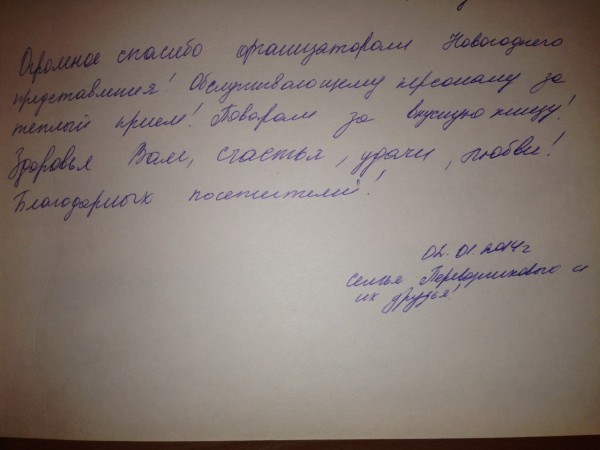 Огромное спасибо организаторам Новогоднего
представления! Обслуживающему персоналу за
теплый прием! Поварам за вкусную пищу!
Здоровья Вам, счастья, удачи, любви!
Благодарных посетителей!
02.01.2014г
семья и
их друзья!